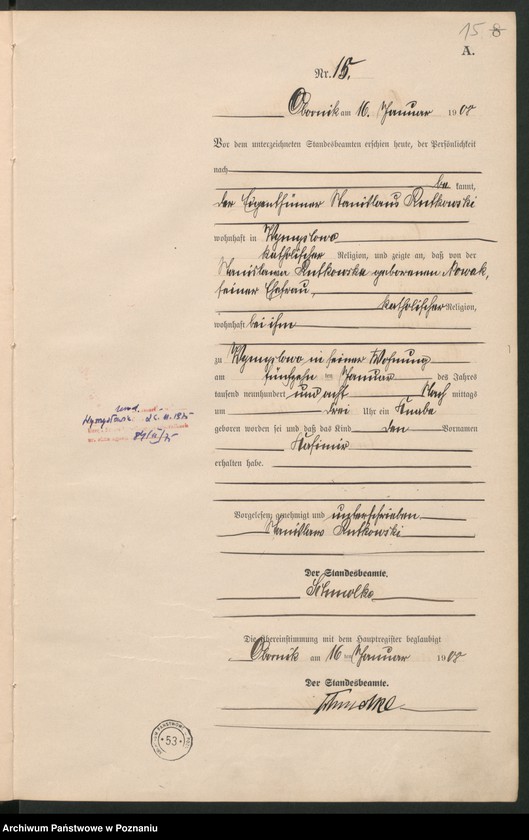 15 8
A.
Nr. 15.
Obornik am 16. Januar 1908
Vor dem unterzeichneten Standesbeamten erschien heute, der Persönlichkeit
nach
be kannt,
der Eigenthümer Stanislaus Rutkowski
wohnhaft in Wymyslowo
katholischer Religion, und zeigte an, daß von der
Stanislawa Rutkowska geborenen Nowak,
seiner Ehefrau,
katholischer Religion,
wohnhaft bei ihm
zu Wymyslowo in seiner Wohnung
am fünfzehn ten Januar des Jahres
tausend neunhundert und acht Nach mittags
um drei Uhr ein Knabe
geboren worden sei und daß das Kind den Vornamen
Kasimir
erhalten habe.
Vorgelesen, genehmigt und unterschrieben
Stanislaw Rutkowski
Der Standesbeamte.
Schmolke
Die Übereinstimmung mit dem Hauptregister beglaubigt
Obornik am 16 ten Januar 1908
Der Standesbeamte.
Schmolke
53
Archiwum Państwowe w Poznaniu